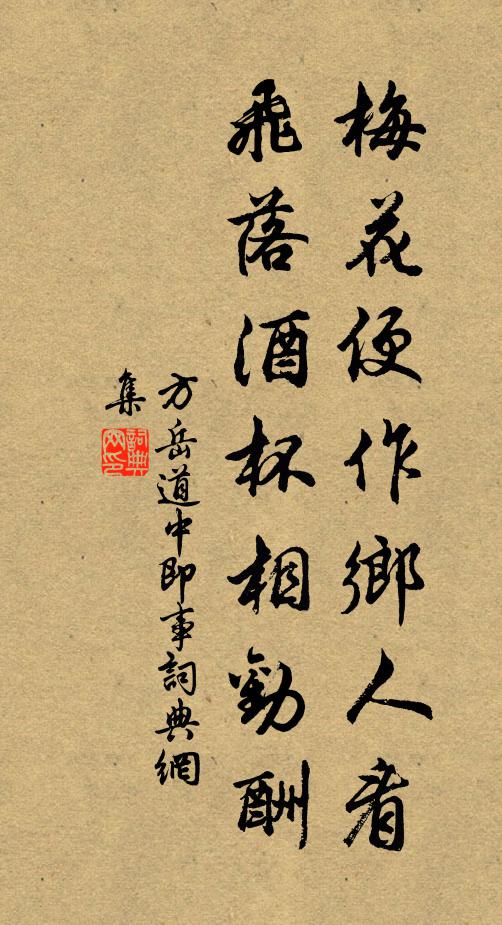 梅花便作鄉人看
飛落酒杯相勸酬
方岳道中即事詞典網
集
詞典網印